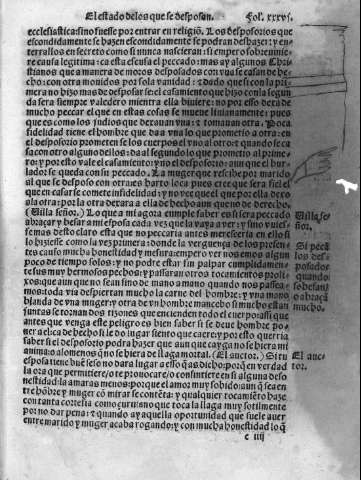 El estado de los que se desposan. Fol. xxxv.
ecclesiastica: sino fuesse por entrar en religiõ. Los desposorios que
escondidamente se hazen escondidamente se podran deshazer: y en
terrallos en secreto como si nunca nascieran: si empero sobreuinie
re causa legitima: ca esta escusa el peccado: mas ay algunos Chri
stianos que a manera de moros desposados con vna se casan de he
cho: con otra mouidos por sola vanidad: τ dado que si con la pri
mera no hizo mas de desposarse: el casamiento que hizo con la segun
da sera siempre valedero mientra ella biuiere: no por esso dexa de
mucho peccar el que en estas cosas se mueue liuianamente: pues
que es como los judios que dexauan vna: τ tomauan otra. Poca
fidelidad tiene el hombre que da a vna lo que prometio a otra: en
el desposorio prometen se los cuerpos el vno al otro: τ quando se ca
sa con otro alguno dellos: da al segundo lo que prometio al prime
ro: y por esto vale el casamiento: y no el desposorio: aun que el bur
lador: se queda con su peccado. La muger rescibe por marido
al que se desposo con otra: es harto loca pues cree que sera fiel el
que en casarse comete infidelidad: y no vee que el que por ella dexo
a la otra: por la otra dexara a ella de hecho aun que no de derecho.
(Villa señor.) Lo que a mi agora cumple saber es si sera peccado
abraçar y besar a mi esposa cada vez que la vaya a ver: y si no vuies
semos desto claro esta que no peccaria antes meresceria en ello si
lo hiziesse como la vez primera: donde la verguença de los presen
tes causo mucha honestidad y mesura: empero ver nos emos algun
poco de tiempo solos: y no podre estar sin palpar cumplidamen
te sus muy hermosos pechos: y passaran otros tocamientos proli
xos: que aun que no sean sino de mano a mano quando nos passea
mos: toda via despiertan mucho la carne del hombre: y vna mano
blanda de vna muger: y otra de vn hombre mancebo si mucho estan
juntas se tornan dos tizones que encienden todo el cuerpo: assi que
antes que venga este peligro es bien saber si se deue hombre po
ner a el: ca de hecho si le do lugar siento que caere: y por esto querria
saber si el desposorio podra hazer que aun que cayga no se hiera mi
anima: o alomenos que no se hiera de llaga mortal. (El auctor.) Si tu
esposa tiene buē seso no dara lugar a esso q̃ as dicho: porq̃ en verdad
la ora que permitiere/o te prouocare/o consintiere en si alguna desho
nestidad: la amaras menos: porque el amor muy sobido: aun q̃ sea en
tre hõbre y muger es mirar se contēta: y qualquier tocamiēto haze
con tanta cortesia como çurujano que toca la llaga muy sotilmente
por no dar pena: τ quando ay aquella oportunidad que suele auer
entre marido y muger acaba rogando: y con mucha honestidad lo q̃
Villa se
ñor.
Si pecã
los des
posados
quando
sobesan
o abraçã
mucho.
El auc
tor.
e iiij